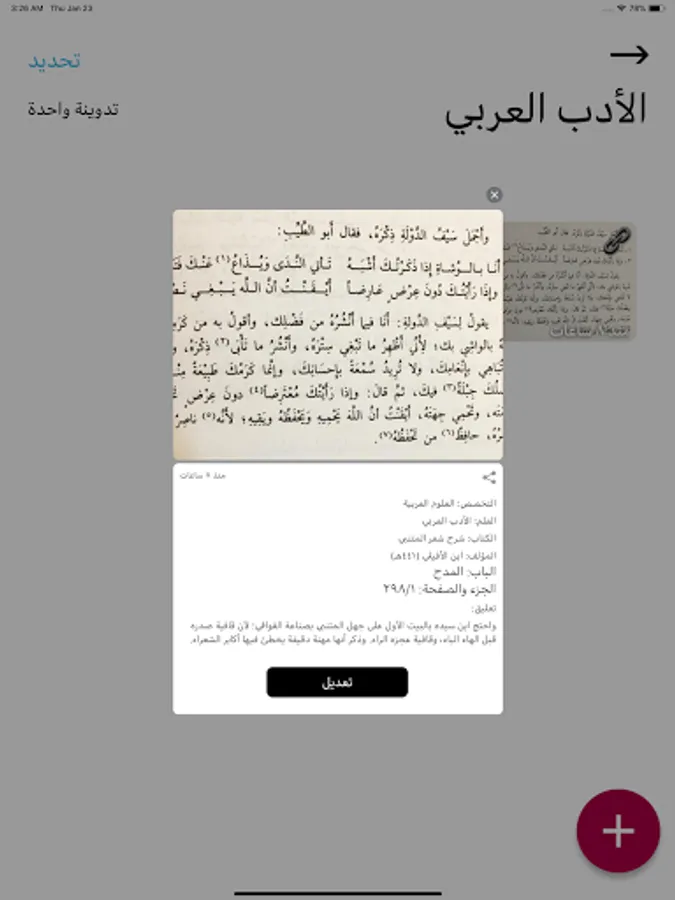 3:26 AM Thu Jan 23
78%
تحديد
الأدب العربي
تدوينة واحدة
وأَجْمَلَ سَيْفُ الدَّوْلَةِ ذِكْرَهُ، فقال أبو الطَّيِّبِ:
أنَا بالوُشاةِ إذا ذَكَرْتُكَ أشْبَهُ تَأْتي النَّدَى وَيُذَاعُ(١) عَنْكَ
وإذا رَأَيْتُكَ دُونَ عِرْضٍ عَارِضاً أيْقَنْتُ أنَّ اللهَ يَبْغِي
يقولُ لِسَيْفِ الدَّولَةِ: أَنَا فيما أنْشُرُهُ من فَضْلِكَ، وأقولُ به من
بالواشِي بك؛ لأنِّي أُظْهِرُ ما تَبْغِي سِتْرَهُ، وأَنْشُرُ ما تَأْبَى(٢) ذِكْرَهُ، و
بإنْعامِكَ، ولا تُرِيدُ سُمْعَةً بإحسَانِكَ، وإنَّما كَرَمُكَ طَبِيعَةٌ
جِبِلَّةٌ(٣) فيكَ، ثمَّ قالَ: وإذا رَأَيْتُكَ مُعْتَرِضاً(٤) دونَ عِرْضٍ
وتَحْمِي جِهَتَهُ، أيْقَنْتُ أنَّ اللهَ يَحْمِيهِ وَيَحْفَظُهُ ويَقِيهِ؛ لأنَّه(٥) ناصِرُ
حافِظٌ(٦) من تَحْفَظُهُ(٧).
منذ ٩ ساعات
التخصص: العلوم العربية
العلم: الأدب العربي
الكتاب: شرح شعر المتنبي
المؤلف: ابن الأفيلي (٤٤١هـ)
الباب: المدح
الجزء والصفحة: ٢٩٨/١
تعليق:
واحتج ابن سيده بالبيت الأول على جهل المتنبي بصناعة القوافي؛ لأن قافية صدره
قبل الهاء الباء، وقافية عجزه الراء. وذكر أنها مهنة دقيقة يخطئ فيها أكابر الشعراء.
تعديل